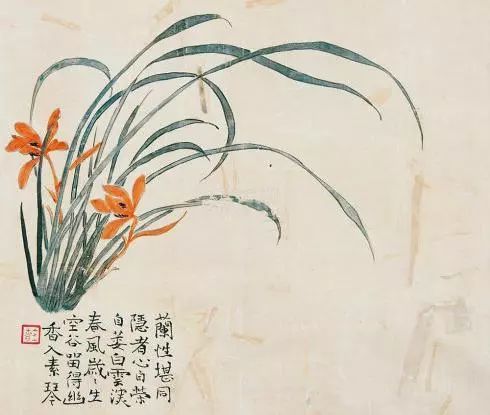 蘭性堪同
隱者心自榮
自萎白雲深
春風歲々生
空谷留得幽
香入素琴